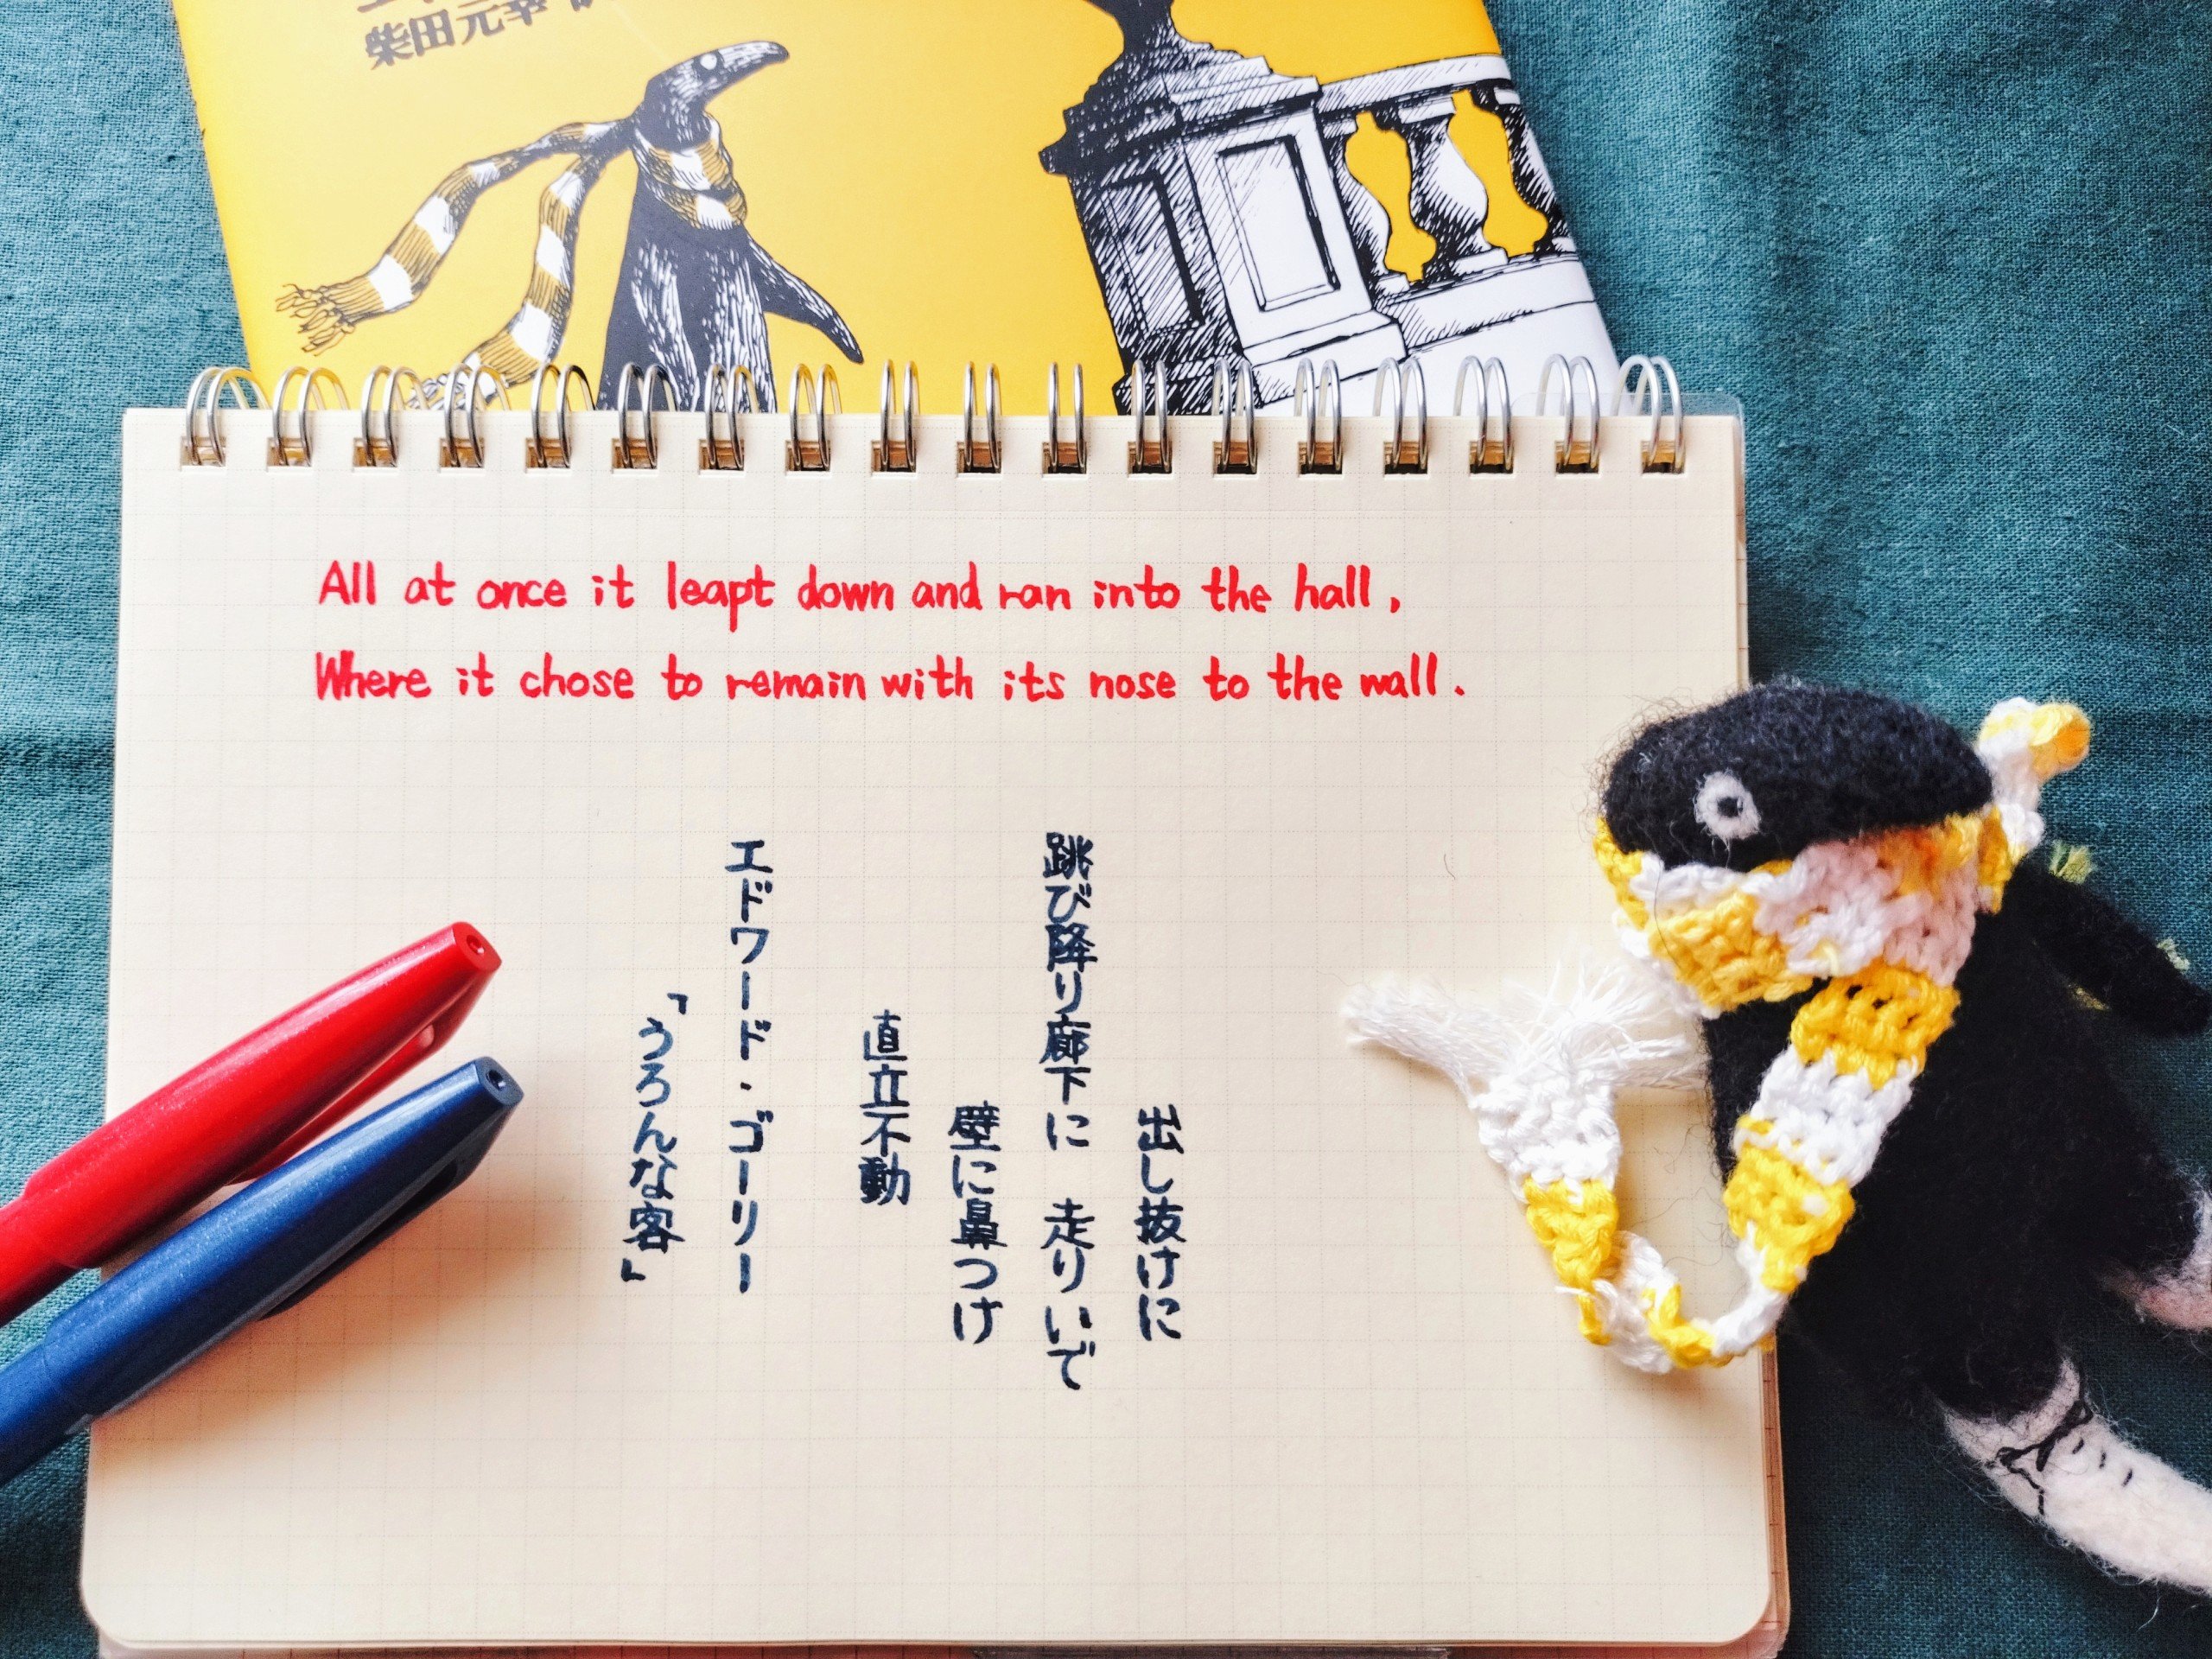 柴田元幸
All at once it leapt down and ran into the hall,
Where it chose to remain with its nose to the wall.
出し抜けに
跳び降り廊下に 走りいで
壁に鼻つけ
直立不動
エドワード・ゴーリー
「うろんな客」